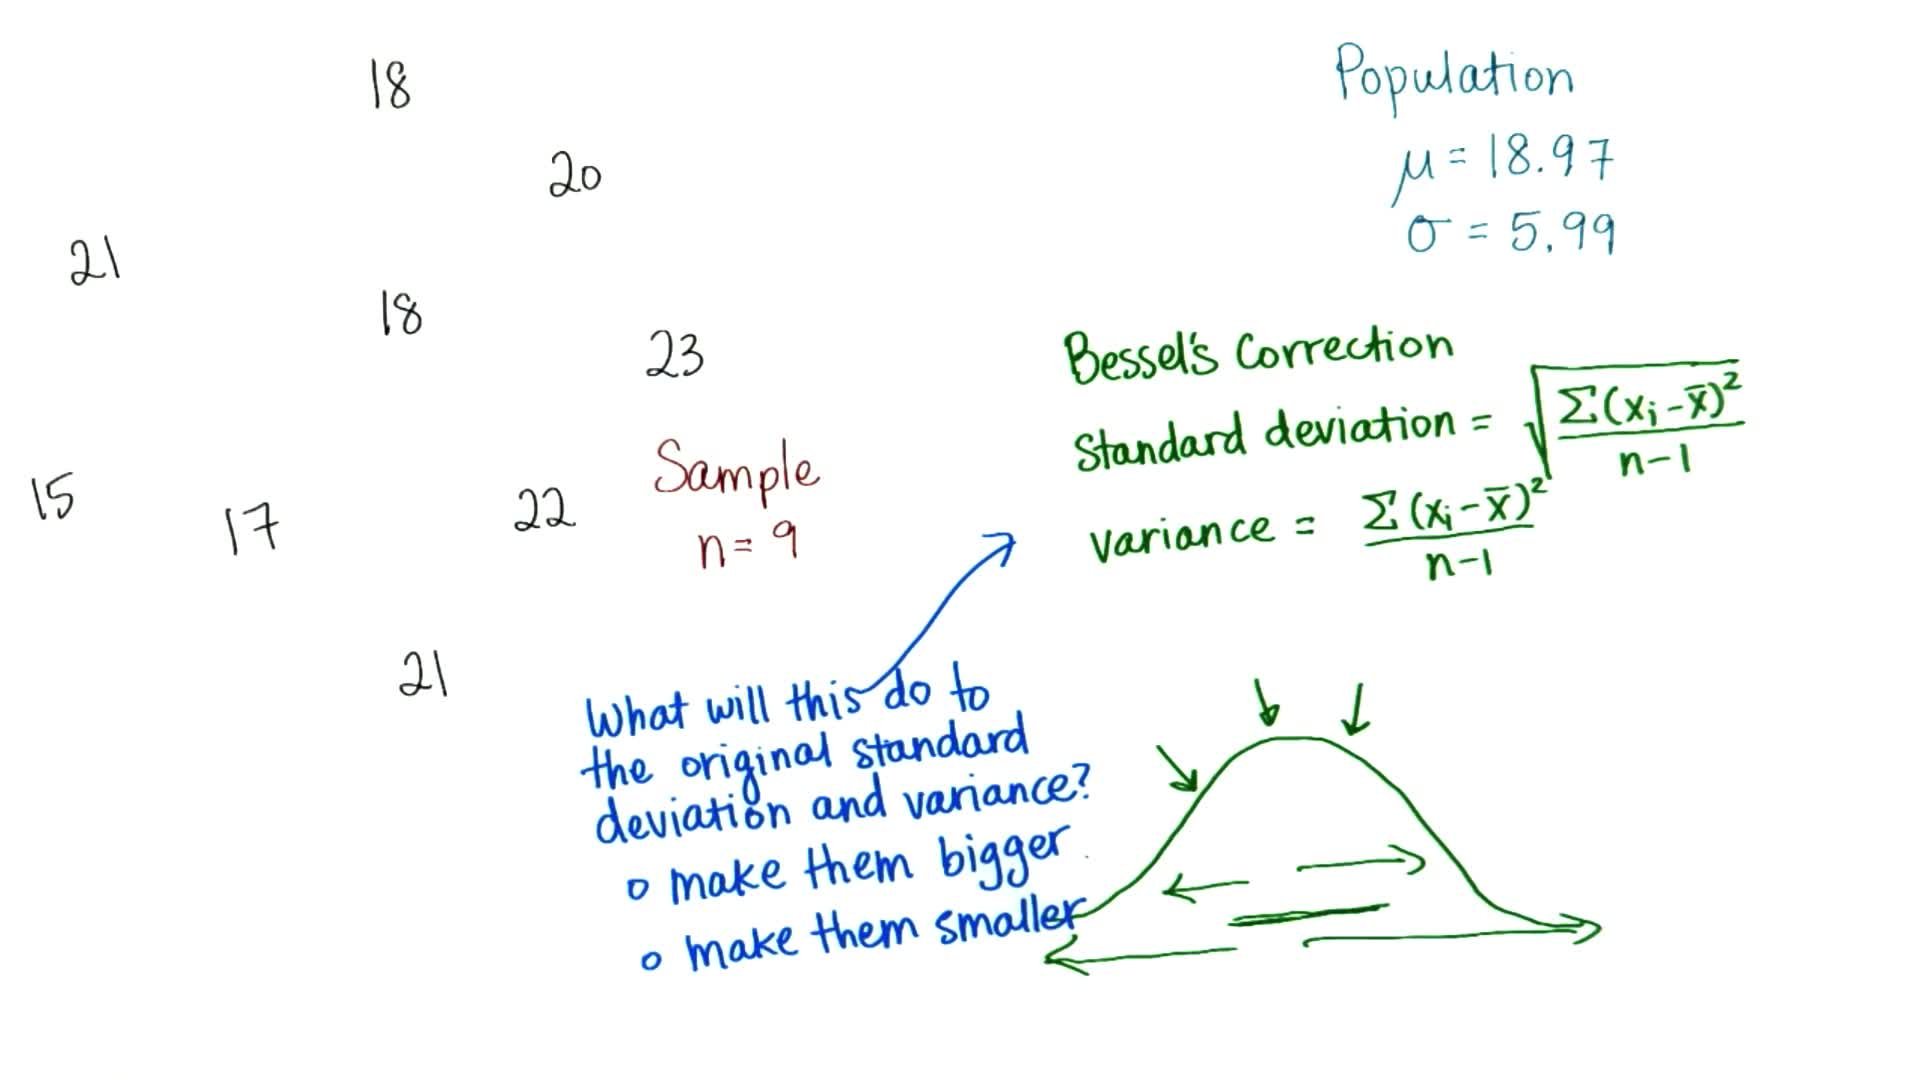 18
20
21
18
23
15
17
22
21
Sample
n = 9
Population
μ = 18.97
σ = 5.99
Bessel's Correction
Standard deviation = √(Σ(xᵢ - x̄)² / n-1)
variance = Σ(xᵢ - x̄)² / n-1
What will this do to
the original standard
deviation and variance?
o make them bigger
o make them smaller